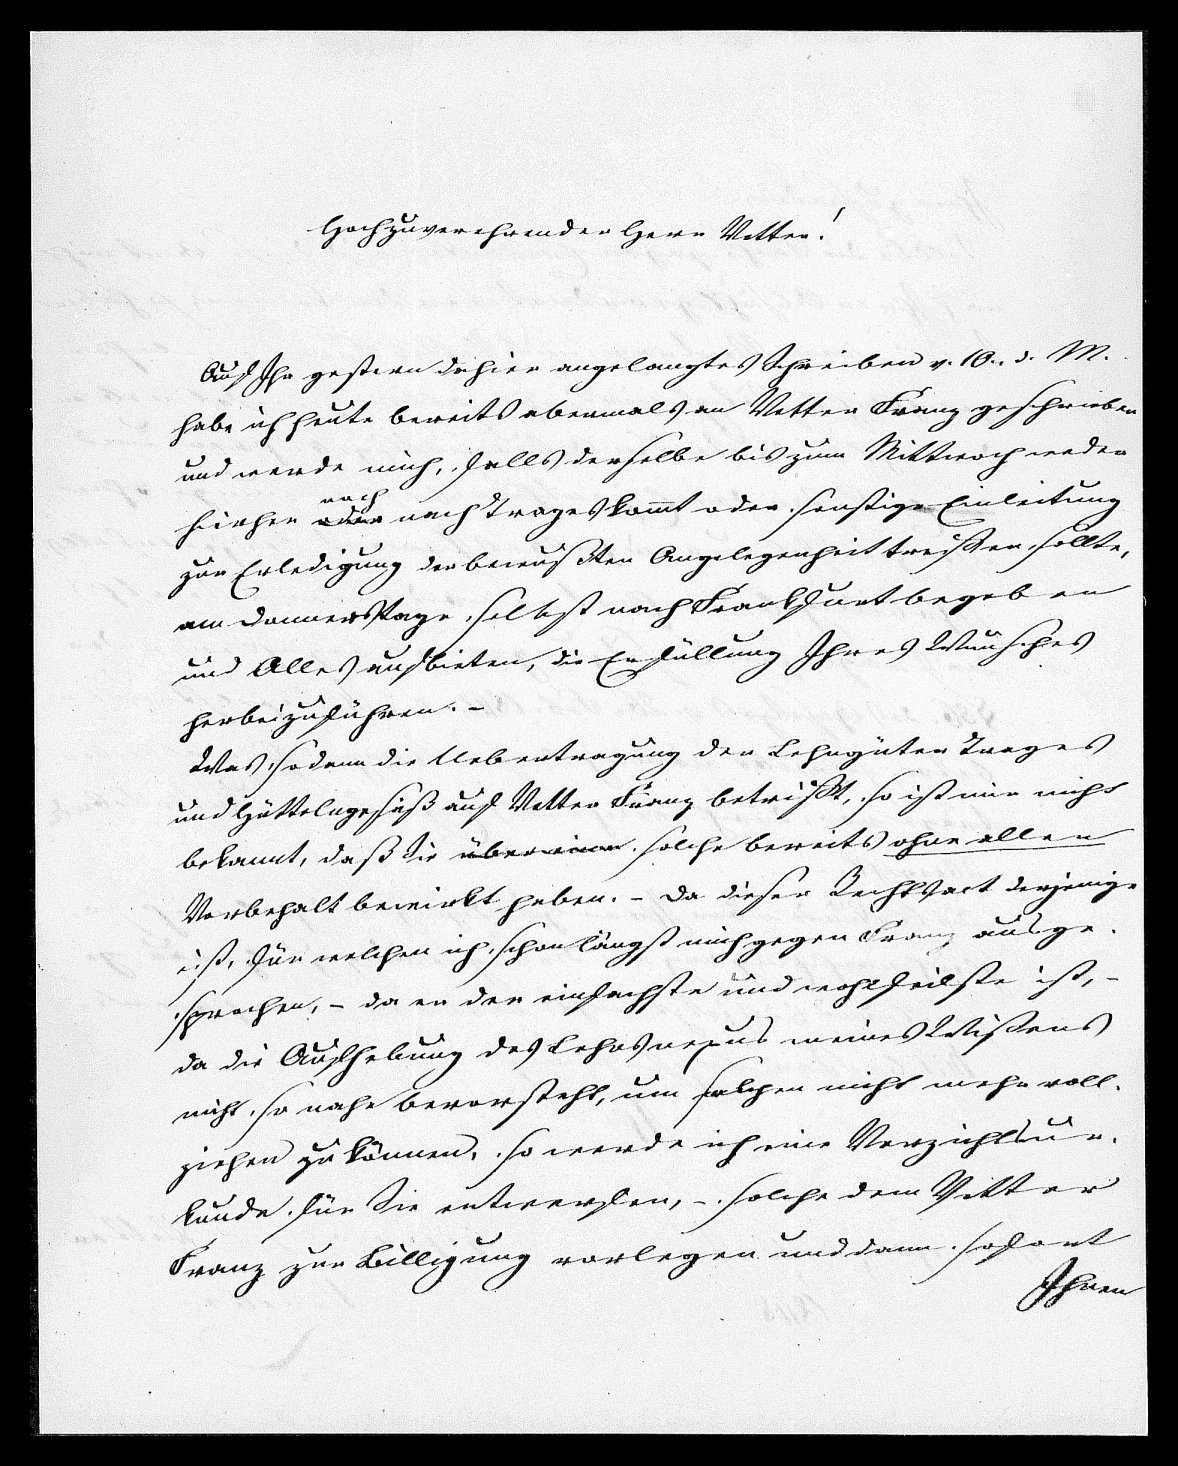 Hochzuverehrender Herr Vetter!
Auf Ihr gestern dahier angelangtes Schreiben v. 10. d. M.
habe ich heute bereits abermals an Vetter Franz geschrieben
und werde mich, falls derselbe bis zum Mittwoch weder
hierher noch nach Trages kom̄t oder sonstige Einleitung
zur Erledigung der bewußten Angelegenheit treffen sollte,
am Donnerstage selbst nach Frankfurt begeben
und Alles aufbieten, die Erfüllung Ihres Wunsches
herbeizuführen. -
Was sodann die Uebertragung der Lehngüter Trages
und Hüttelngesäß auf Vetter Franz betrifft, so ist mir nicht
bekannt, daß Sie solche bereits ohne allen
Vorbehalt bewirkt haben. - Da dieser Rechtsact derjenige
ist, für welchen ich schon längst mich gegen Franz ausge-
sprochen, - da er der einfachste und wohlfeilste ist, -
da die Aufhebung des Lehnsnexus meines Wißens
nicht so nahe bevorsteht, um solchen nicht mehr voll-
ziehen zu können, so werde ich eine Verzichtsur-
kunde für Sie entwerfen, - solche dem Vetter
Franz zur Billigung vorlegen und dann sofort
Ihnen